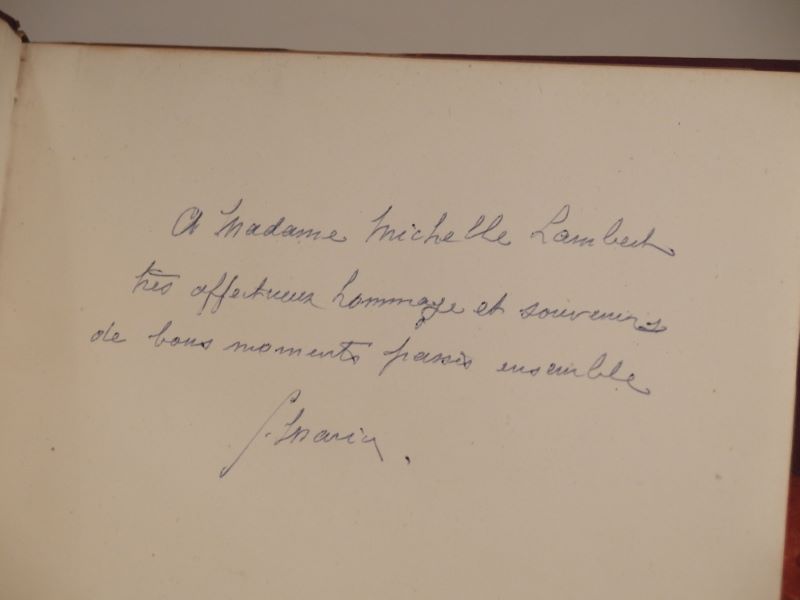 A Madame Michelle Lambert
très affectueux hommage et souvenirs
de bons moments passés ensemble